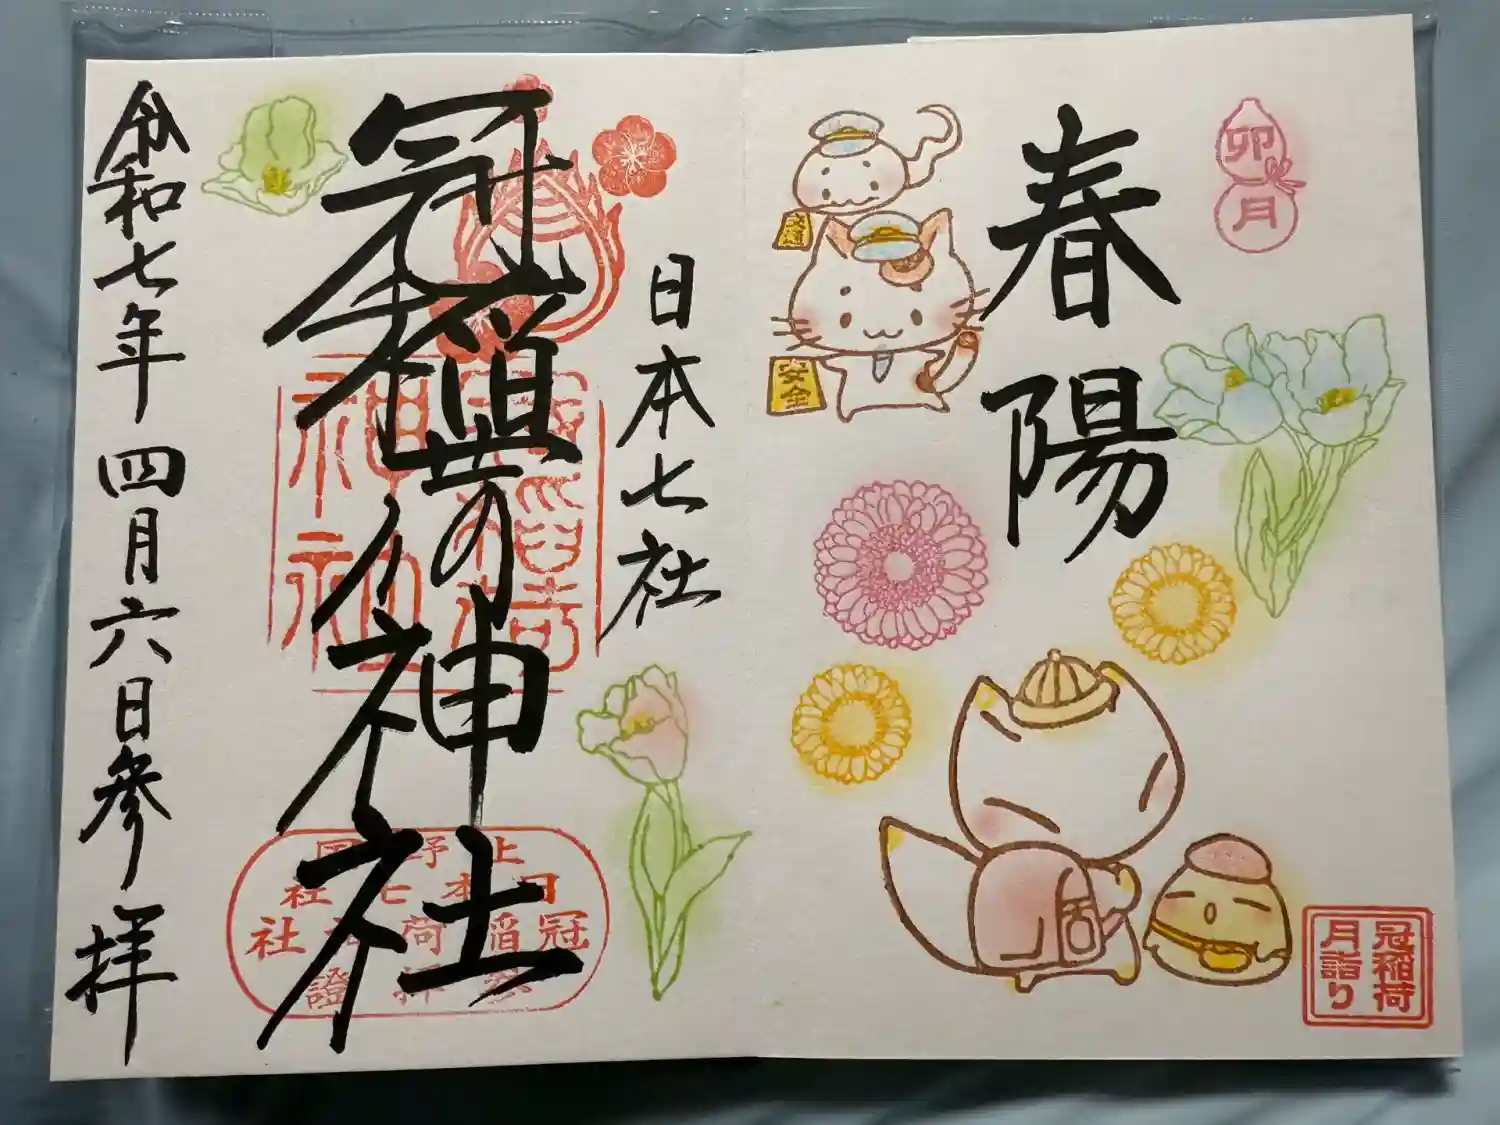 卯月
春陽
交通
安全
冠稲荷
月詣り
日本七社
冠稲荷神社
令和七年四月六日参拝
上野国
日本七社
冠稲荷神社
参拝證